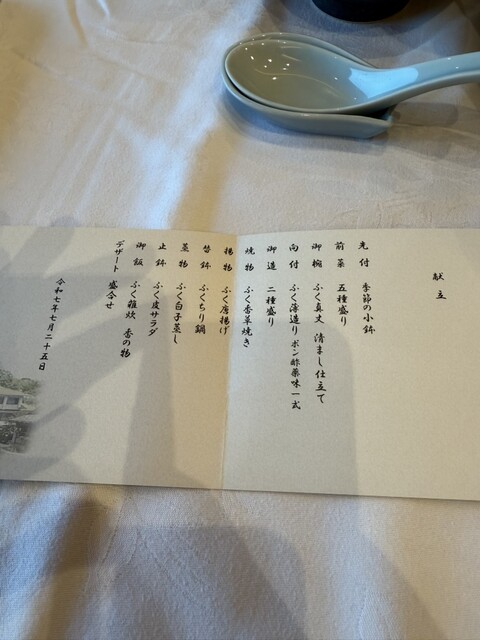 献立
先付 季節の小鉢
前菜 五種盛り
御椀 ふく真丈 清まし仕立て
向付 ふく薄造り ポン酢薬味一式
御造 二種盛り
焼物 ふく香草焼き
揚物 ふく唐揚げ
替鉢 ふくちり鍋
蒸物 ふく白子蒸し
止鉢 ふく皮サラダ
御飯 ふく雑炊 香の物
デザート 盛合せ
令和七年七月二十五日